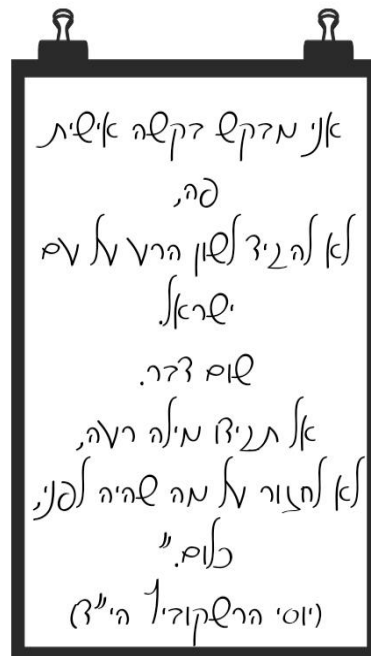 אני מבקש בקשה אישית
פה,
לא להגיד לשון הרע על עם
ישראל.
שום דבר.
אל תגידו מילה רעה,
לא לחזור על מה שהיה לפני,
כלום."
(יוסי הרשקוביץ הי"ד)